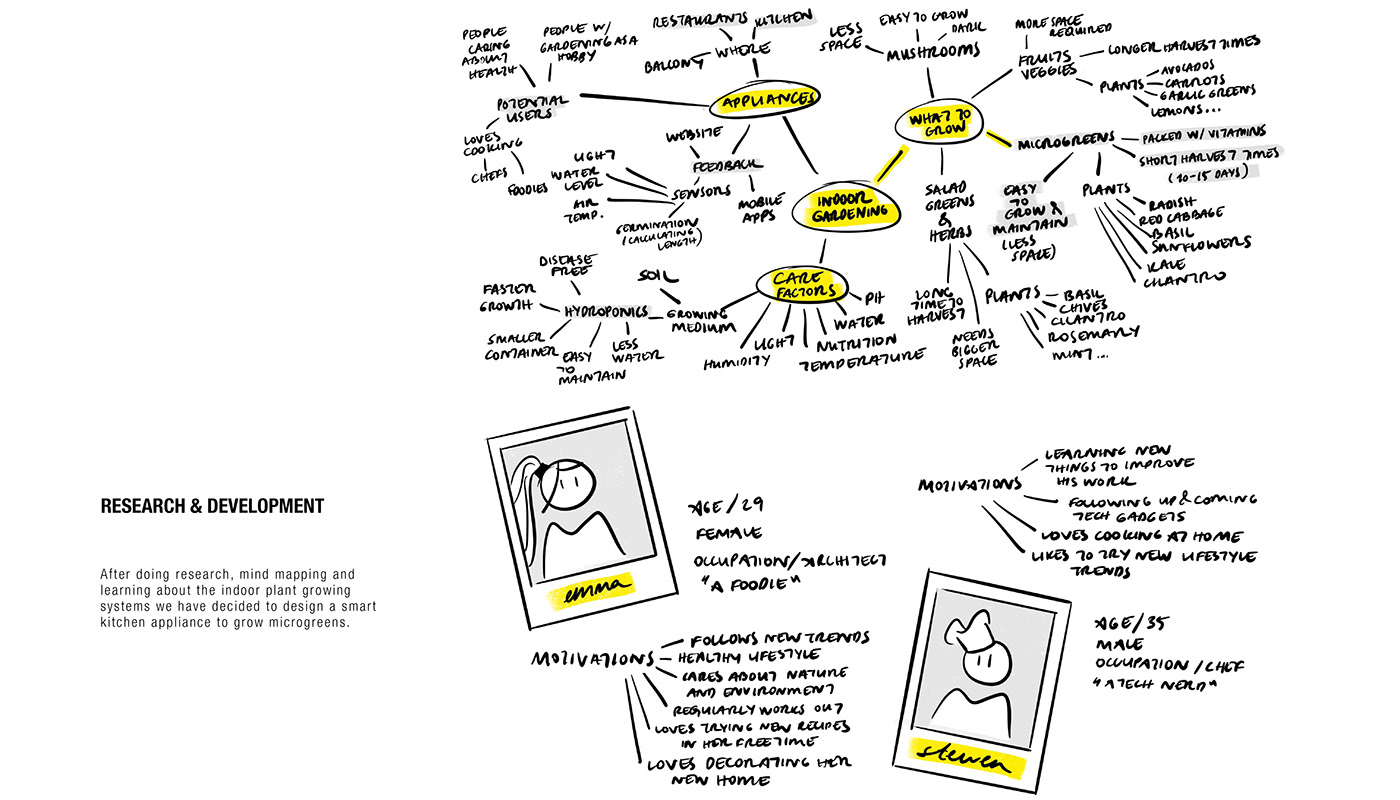 PEOPLE
CARING
ABOUT
HEALTH
PEOPLE W/
GARDENING AS A
HOBBY
POTENTIAL
USERS
LOVES
COOKING
CHEFS
FOODIES
RESTAURANTS
KITCHEN
BALCONY
WHERE
APPLIANCES
WEBSITE
FEEDBACK
MOBILE
APPS
SENSORS
LIGHT
WATER
LEVEL
AIR
TEMP.
GERMINATION
(CALCULATING
LENGTH)
INDOOR
GARDENING
WHAT TO
GROW
LESS
SPACE
EASY TO GROW
DARK
MUSHROOMS
MORE SPACE
REQUIRED
FRUITS
VEGGIES
LONGER HARVEST TIMES
PLANTS
AVOCADOS
CARROTS
GARLIC GREENS
LEMONS...
MICROGREENS
PACKED W/ VITAMINS
SHORT HARVEST TIMES
(10-15 DAYS)
EASY
TO
GROW &
MAINTAIN
(LESS
SPACE)
PLANTS
RADISH
RED CABBAGE
BASIL
SUNFLOWERS
KALE
CILANTRO
SALAD
GREENS
&
HERBS
LONG
TIME TO
HARVEST
NEEDS
BIGGER
SPACE
PLANTS
BASIL
CHIVES
CILANTRO
ROSEMARY
MINT...
CARE
FACTORS
PH
WATER
NUTRITION
TEMPERATURE
LIGHT
HUMIDITY
GROWING
MEDIUM
SOIL
HYDROPONICS
DISEASE
FREE
FASTER
GROWTH
SMALLER
CONTAINER
EASY
TO
MAINTAIN
LESS
WATER
RESEARCH & DEVELOPMENT
After doing research, mind mapping and
learning about the indoor plant growing
systems we have decided to design a smart
kitchen appliance to grow microgreens.
emma
AGE / 29
FEMALE
OCCUPATION / ARCHITECT
"A FOODIE"
MOTIVATIONS
FOLLOWS NEW TRENDS
HEALTHY LIFESTYLE
CARES ABOUT NATURE
AND ENVIRONMENT
REGULARLY WORKS OUT
LOVES TRYING NEW RECIPES
IN HER FREETIME
LOVES DECORATING HER
NEW HOME
MOTIVATIONS
LEARNING NEW
THINGS TO IMPROVE
HIS WORK
FOLLOWING UP & COMING
TECH GADGETS
LOVES COOKING AT HOME
LIKES TO TRY NEW LIFESTYLE
TRENDS
steven
AGE / 35
MALE
OCCUPATION / CHEF
"A TECH NERD"